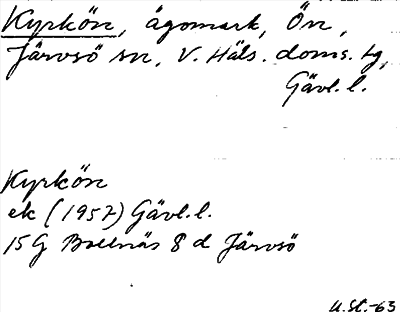 Kyrkön, ägomark, Ön,
Järvsö sn, V. Häls. doms. tg,
Gävl. l.
Kyrkön
ek (1957) Gävl. l.
15G Bollnäs 8 d Järvsö
U.St.-63